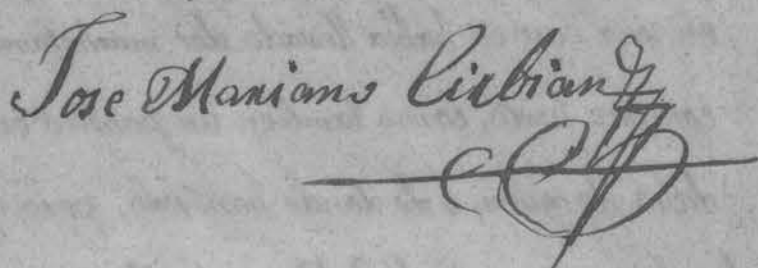 Jose Mariano Cirbian